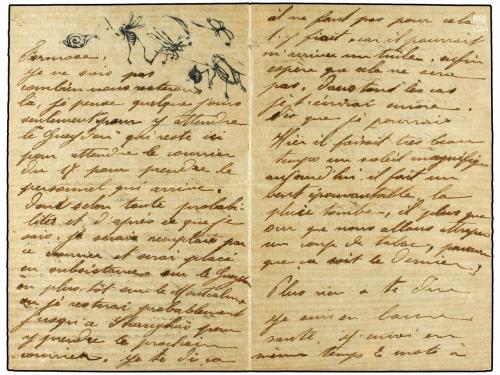 Formose.
Je ne sais pas
combien nous resterons
là, je pense quelques jours
seulement pour y attendre
le "Gueydon" qui reste ici
pour attendre le courrier
du 18 pour prendre le
personnel qui arrive.
Donc selon toute probabi-
lités et d'après ce que je
sais je serais remplacé par
ce courrier et serai placé
en subsistance sur le Gueydon
ou plus-tôt sur le Montcalm
où je resterai probablement
jusqu'à Shanghaï pour
y prendre le prochain
courrier. Je te dis ça
il ne faut pas pour cela
car il pourrait
m'arriver un tuile, enfin
espère que cela ne sera
pas. Dans tous les cas
je t'écrirai encore
dès que je pourrais
Hier il faisait très beau
temps un soleil magnifique
aujourd'hui il fait un
vent épouvantable la
pluie tombe, il plus que
sur que nous allons attraper
un coup de tabac, pourvu
que ce soit le dernier,
Plus rien à te dire
je suis en bonne
santé, j'écris en
même temps 2 mots à